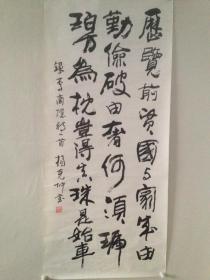 歷覽前賢國与家成由
勤儉破由奢何須琥
珀方為枕豈得真珠是始車
録李商隐詩一首